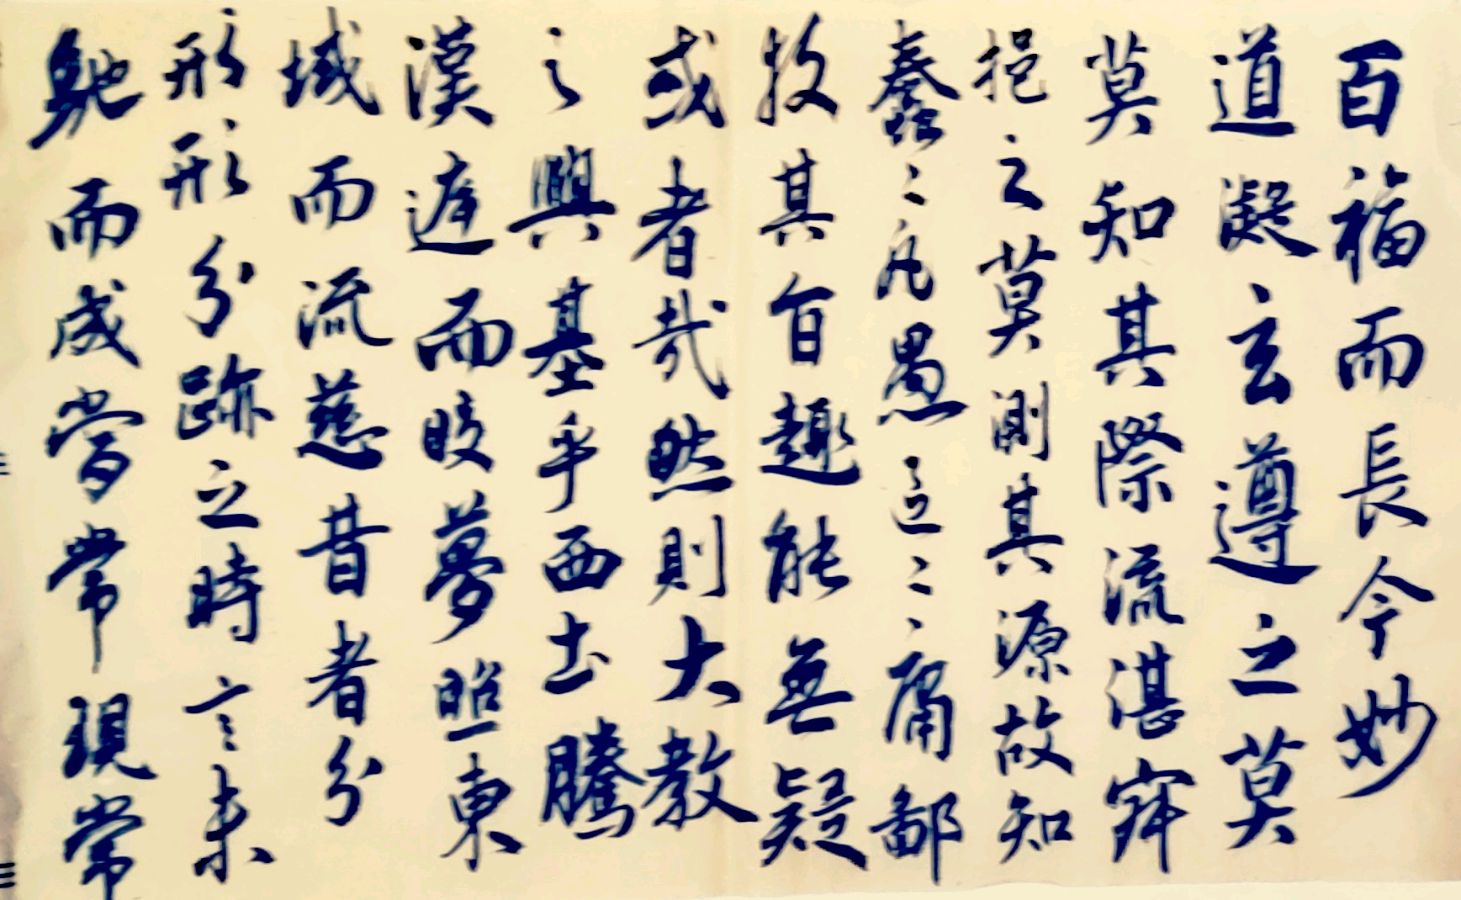 百福而長今妙
道凝玄遵之莫
莫知其際流湛寂
挹之莫測其源故知
蠢〻凡愚區〻庸鄙
投其旨趣能無疑
或者哉然則大教
之興基乎西土騰
漢庭而皎夢照東
域而流慈昔者分
形形分跡之時言未
馳而成當常現常